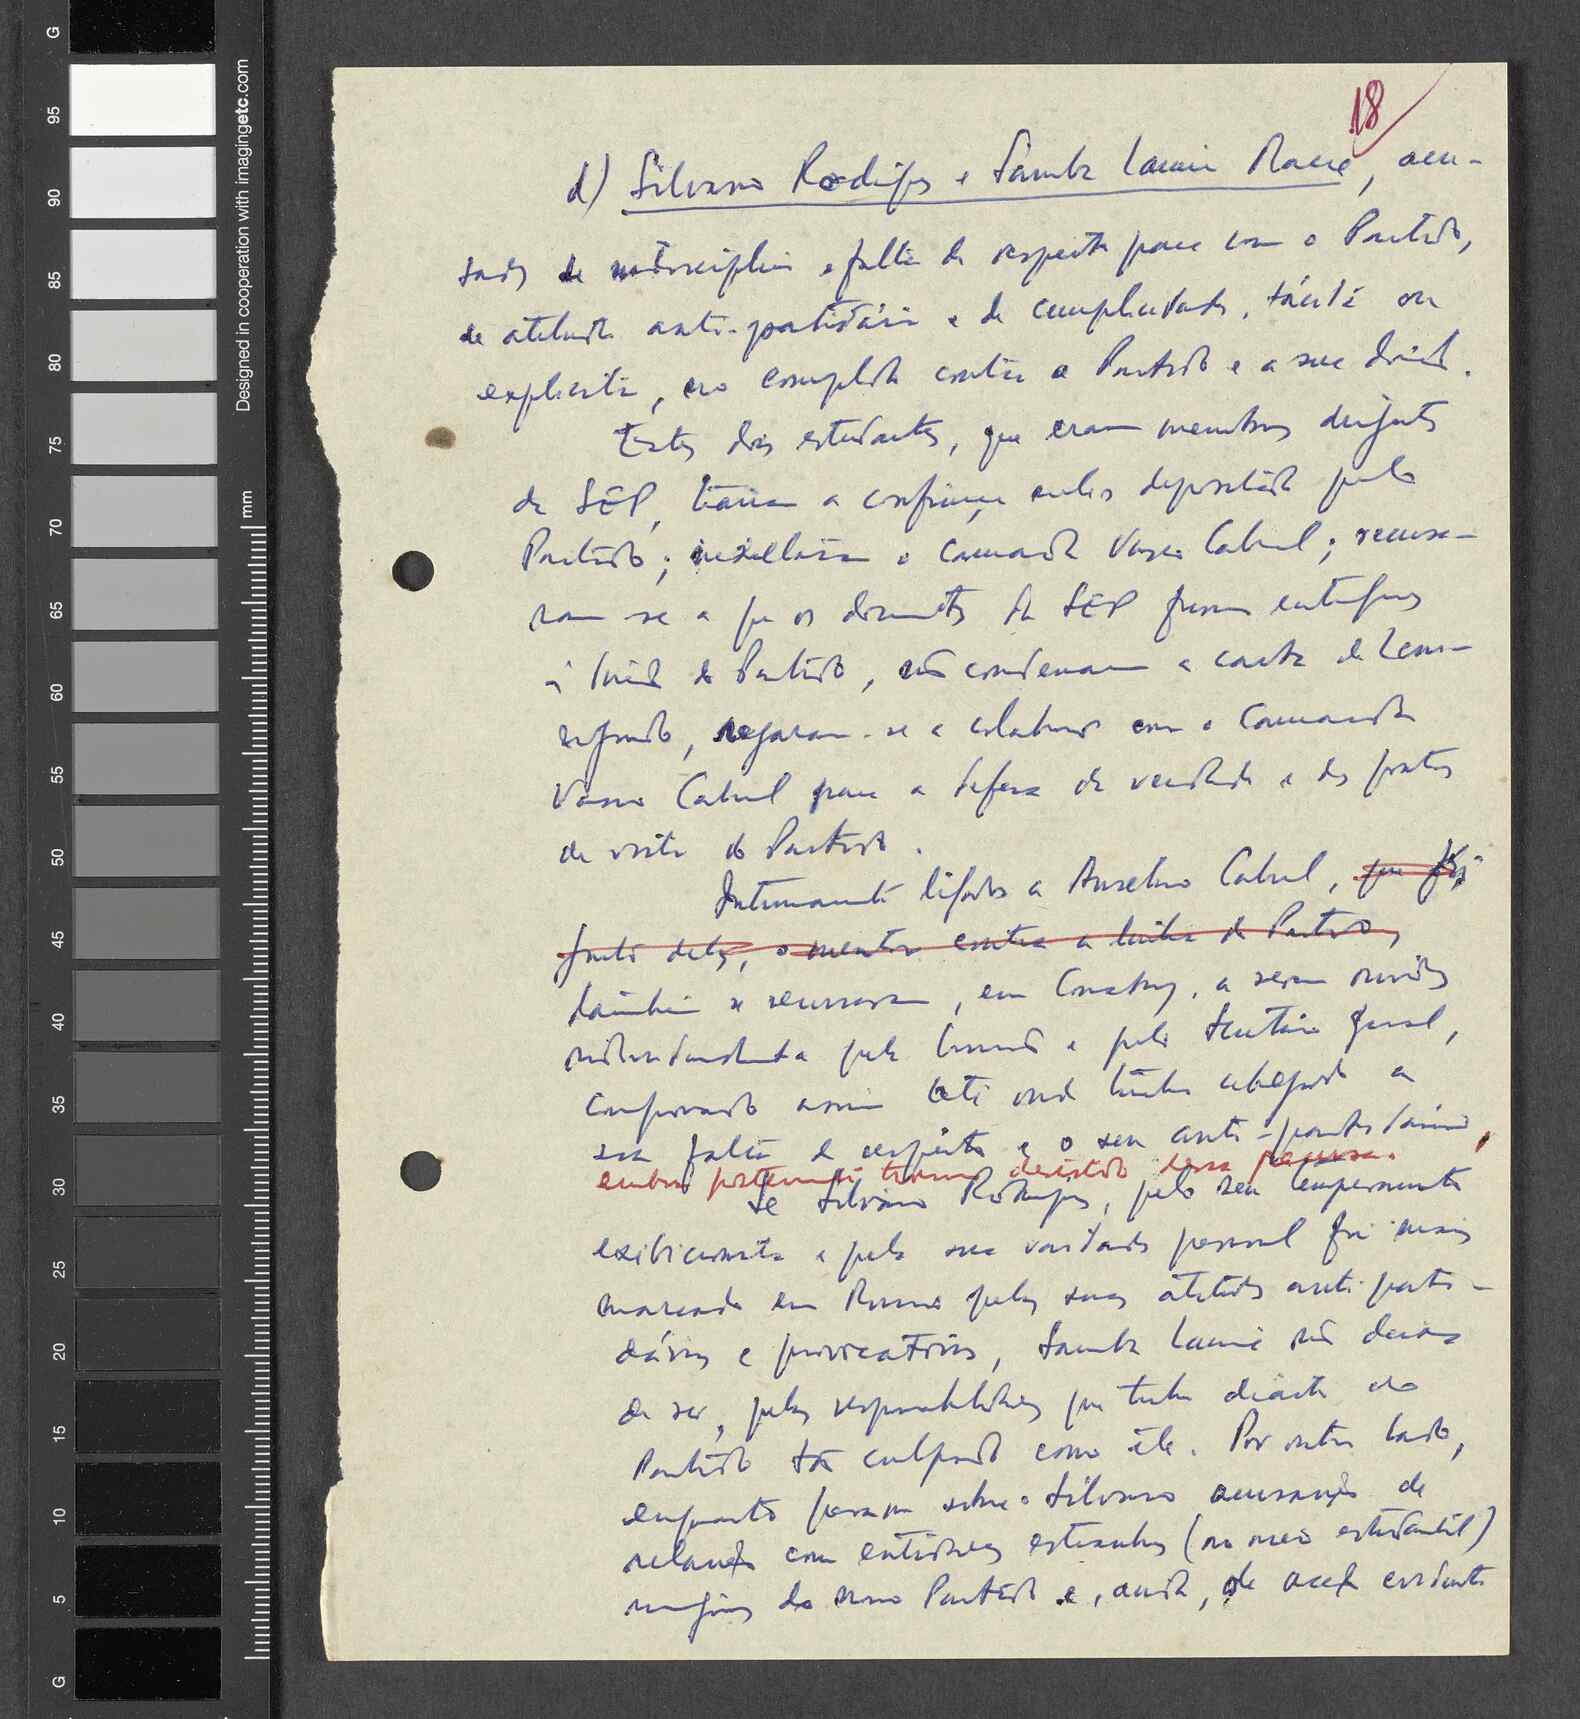 18
d) Silvino Rodrigues e Samba Lamine Mané, acu-
sados de indisciplina e falta de respeito para com o Partido,
de atitude anti-partidária e de cumplicidade, tácita ou
explícita, no complot contra o Partido e a sua
Estes dois estudantes, que eram membros dirigentes
da SEP, traíram a confiança neles depositada pelo
Partido; o camarada Vasco Cabral; recusa-
ram-se a que os documentos da SEP fossem entregues
à do Partido, não condenaram a carta de
negaram-se a colaborar com o Camarada
Vasco Cabral para a defesa da verdade e dos pontos
de vista do Partido.
Intimamente ligados a Anselmo Cabral, que foi
junto deles, o mentor contra a linha do Partido,
também se recusaram, em Conakry, a serem ouvidos
individualmente pela e pelo Secretário Geral,
comprovando assim até onde tinha chegado a
sua falta de respeito e o seu anti-partidarismo,
embora posteriormente tivessem desistido dessa recusa.
Se Silvino Rodrigues, pelo seu temperamento
exibicionista e pela sua vaidade pessoal foi mais
marcado em pelas suas atitudes anti-parti-
dárias e provocatórias, Samba Lamine não deixa
de ser, pelas responsabilidades que tinha diante do
Partido tão culpado como ele. Por outro lado,
enquanto pesam sobre o Silvino acusações de
relações com entidades estranhas (no meio estudantil)
do nosso Partido e, ainda, de